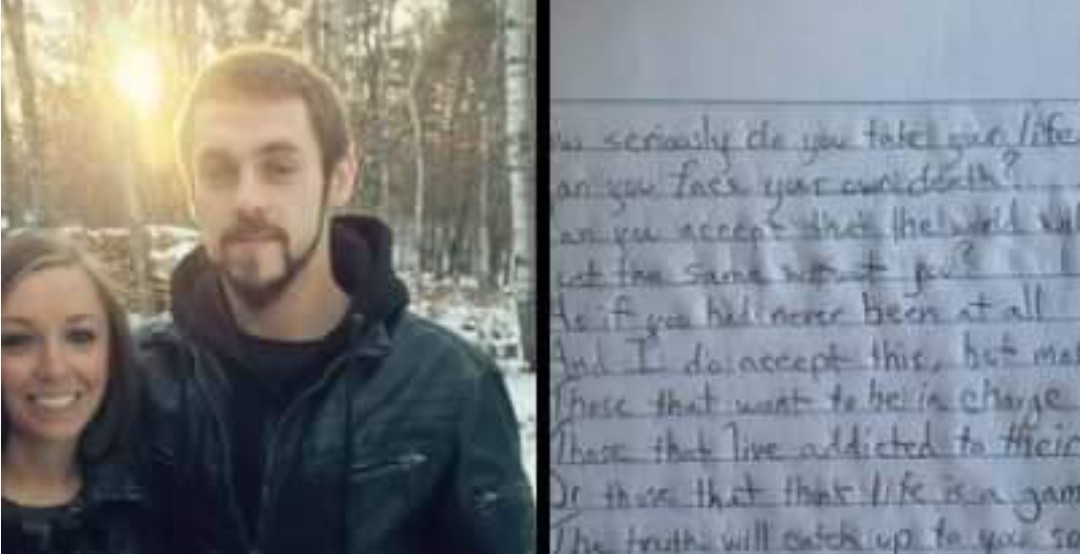 seriously do you take your life
an you face your own death?
an you accept that the world wil
ot the same without you?
As if you had never been at all
And I do accept this, but mo
Those that want to be in charge
Those that live addicted to their
Or those that think life is a gam
The truth will catch up to you so